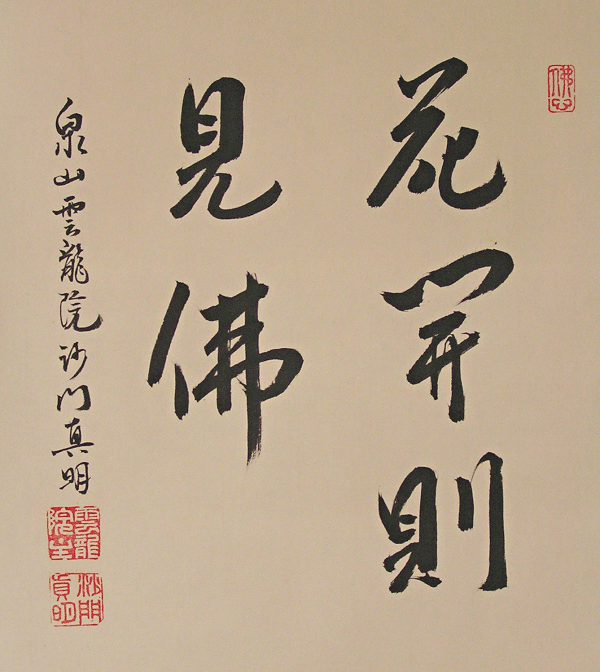 佛心
花開則
見佛
泉山雲龍院沙門真明
雲龍
院
沙門
真明